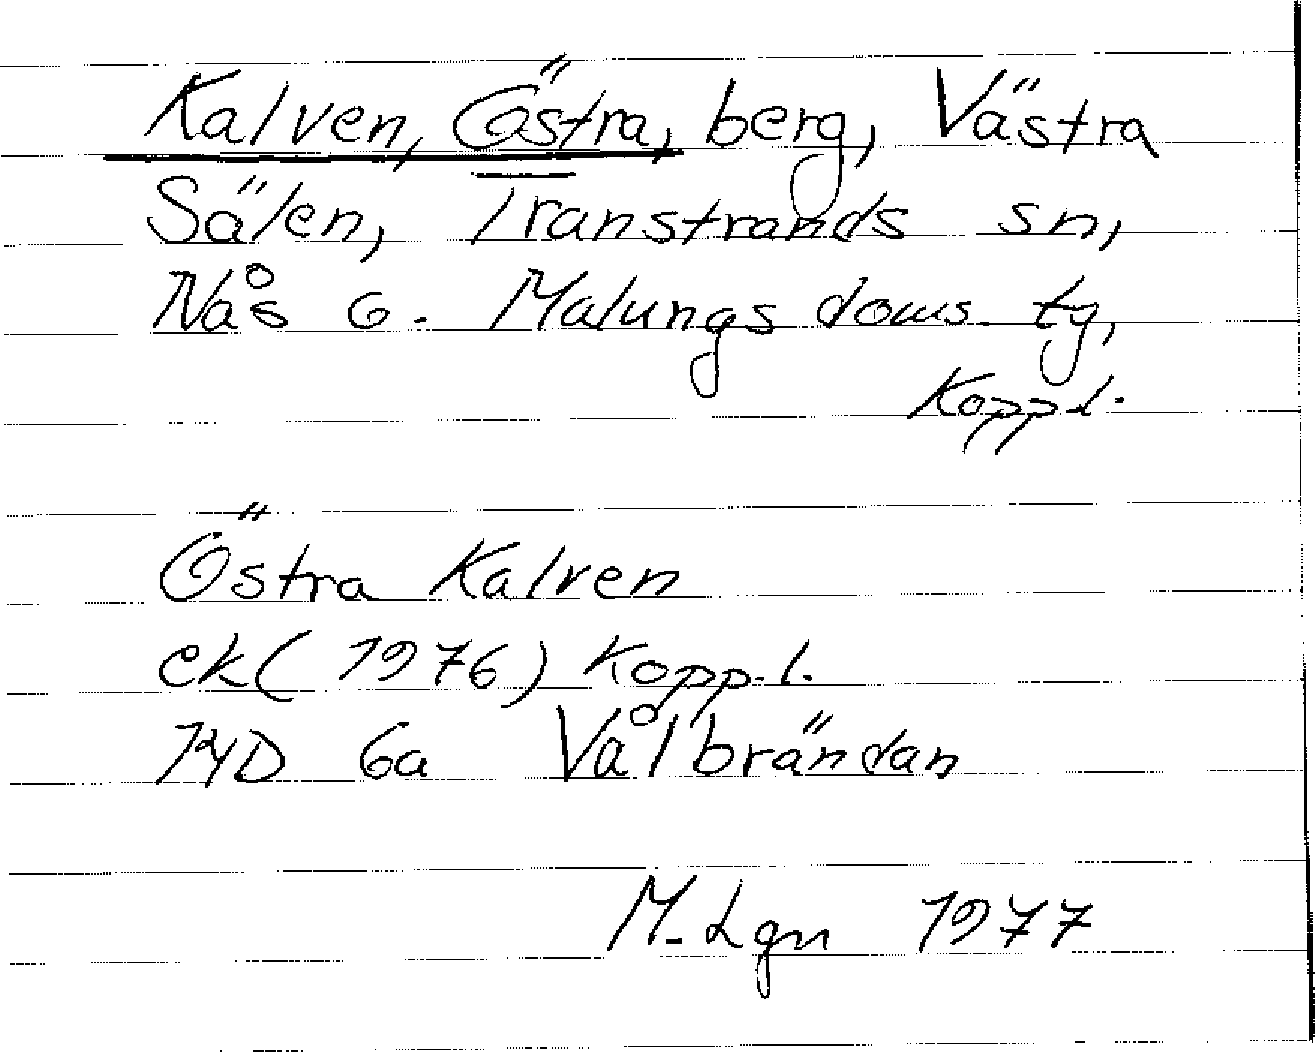 Kalven, Östra, berg, Västra
Sälen, Transtrands sn,
Nås o. Malungs doms. tg,
Kopp.l.
Östra Kalven
ek (1976) Kopp.l.
13D 6a Vålbrändan
M. Lgn 1977